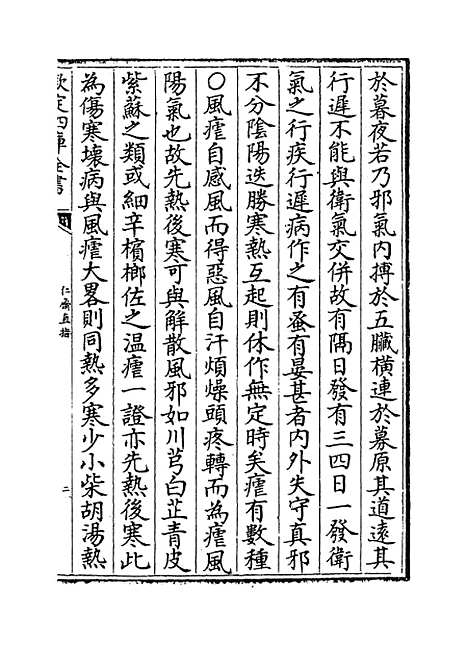 於暮夜若乃邪氣内搏於五臟横連於募原其道逺其
行遲不能與衛氣交併故有隔日發有三四日一發衛
氣之行疾行遲病作之有蚤有晏甚者内外失守真邪
不分陰陽迭勝寒熱互起則休作無定時矣瘧有數種
○風瘧自感風而得惡風自汗煩燥頭疼轉而為瘧風
陽氣也故先熱後寒可與解散風邪如川芎白芷青皮
紫蘇之類或細辛檳榔佐之温瘧一證亦先熱後寒此
為傷寒壊病與風瘧大畧則同熱多寒少小柴胡湯熱
欽定四庫全書
仁齋直指
二